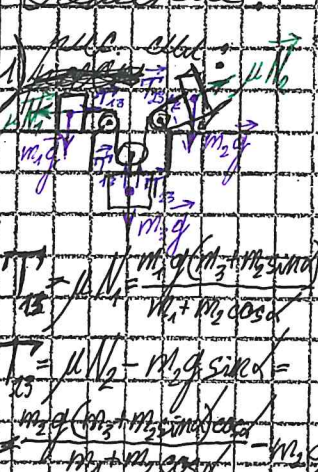 рис. силы:
1)
T₁₃ T₂₃ μN₂
μN₁
m₁g m₂g
T₁₃ T₂₃
m₃g
T₁₃ = μN₁ = m₁g(m₃+m₂sinα) / m₁+m₂cosα
T₂₃ = μN₂ - m₂g sinα =
= m₂g(m₃+m₂sinα)cosα / m₁+m₂cosα - m₂